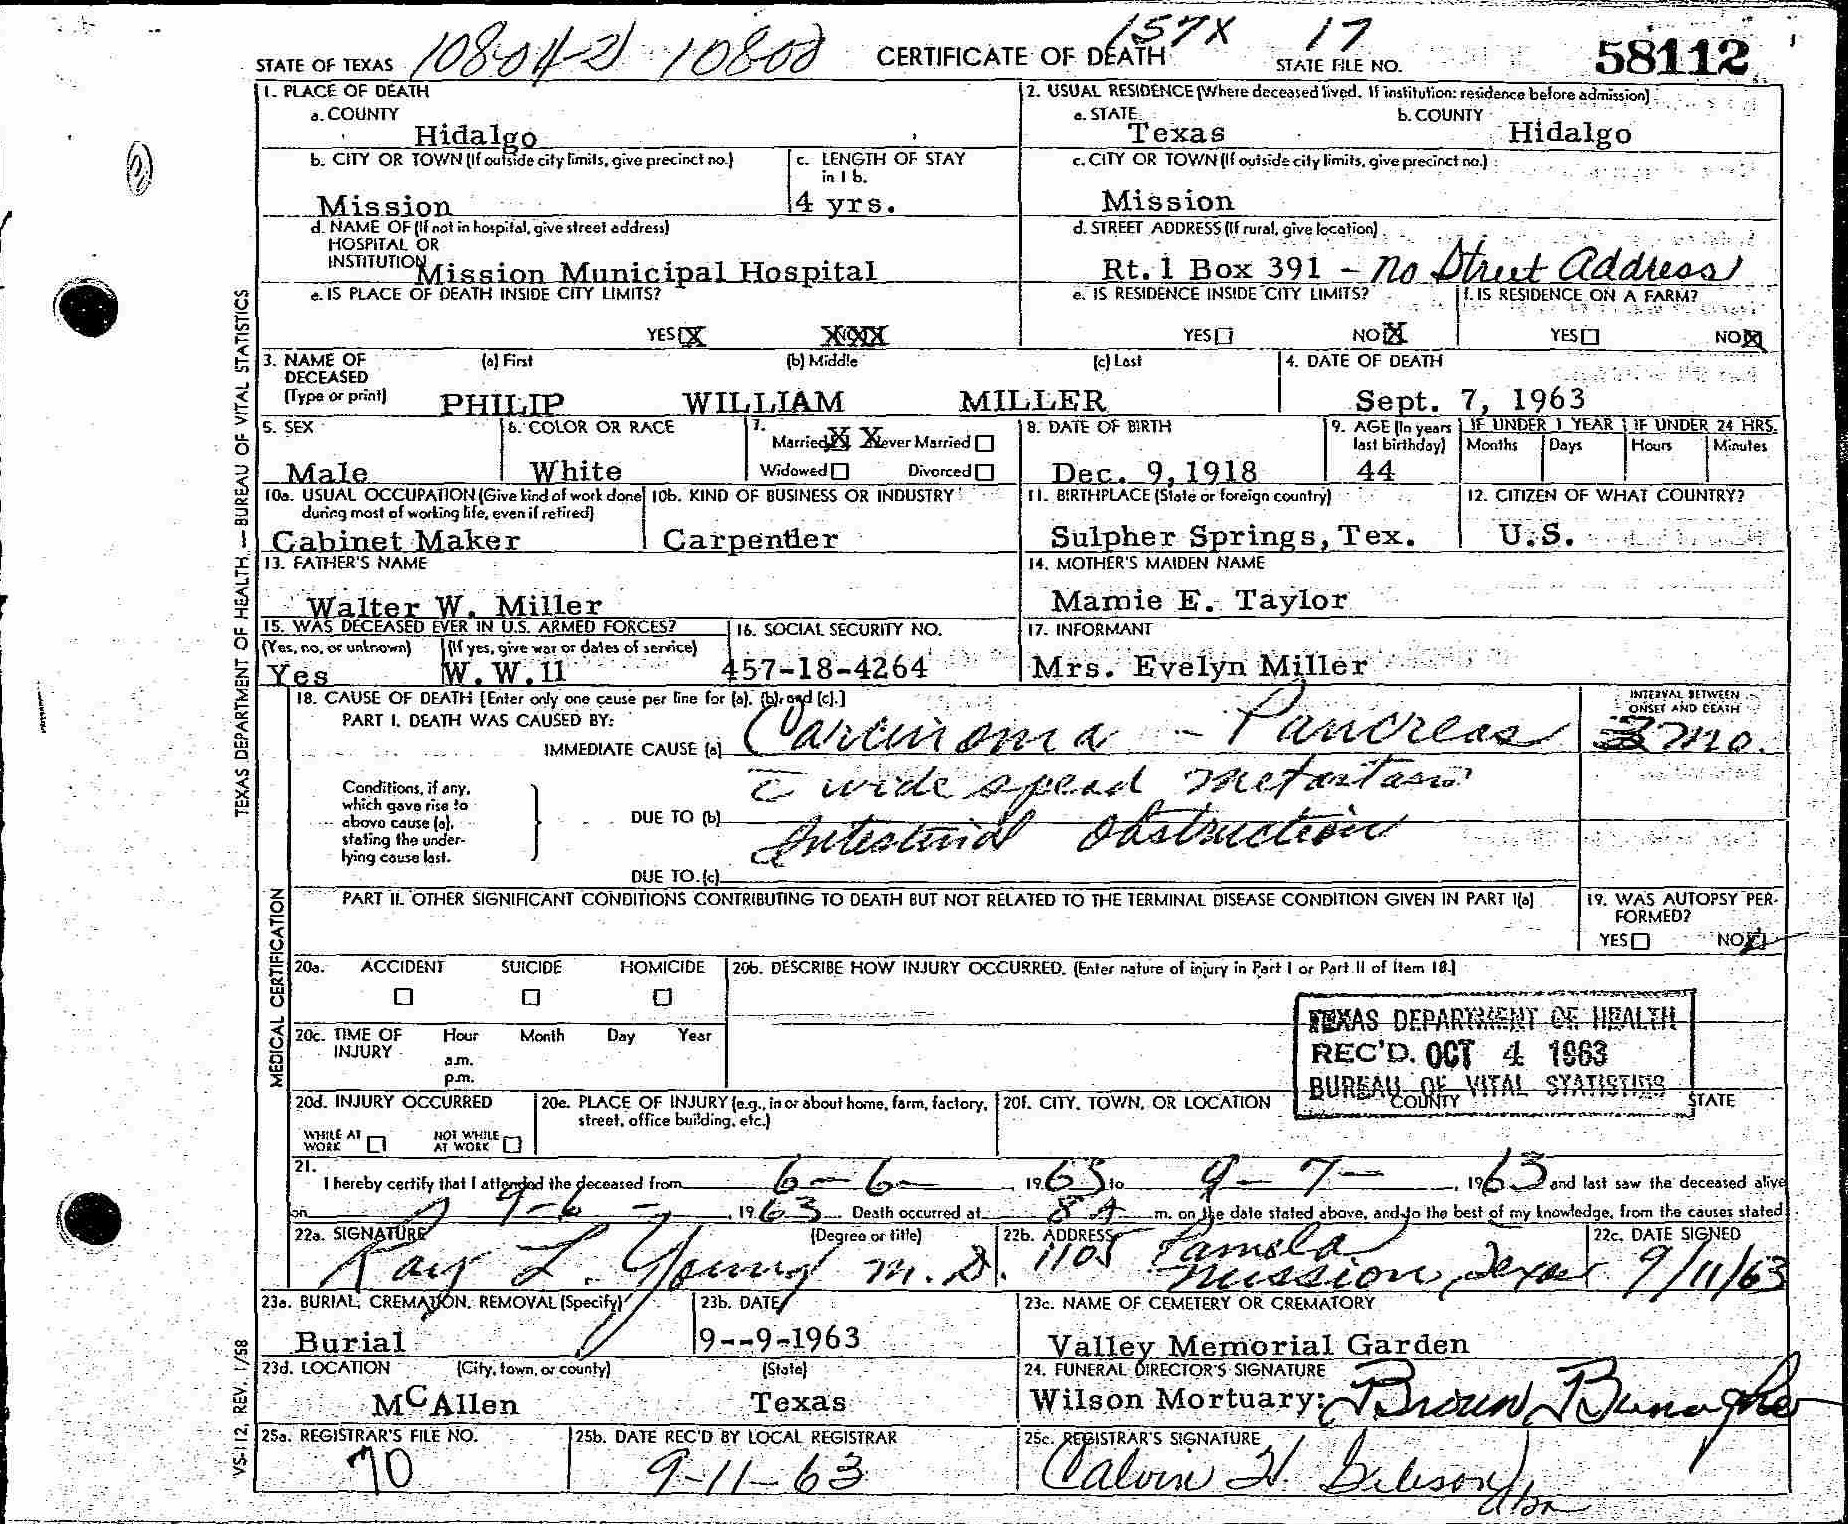 STATE OF TEXAS 10804-21 10800 CERTIFICATE OF DEATH 157X 17 STATE FILE NO. 58112
TEXAS DEPARTMENT OF HEALTH — BUREAU OF VITAL STATISTICS
1. PLACE OF DEATH
a. COUNTY
Hidalgo
2. USUAL RESIDENCE (Where deceased lived. If institution: residence before admission)
a. STATE b. COUNTY
Texas Hidalgo
b. CITY OR TOWN (If outside city limits, give precinct no.)
Mission
c. LENGTH OF STAY
in 1 b.
4 yrs.
c. CITY OR TOWN (If outside city limits, give precinct no.)
Mission
d. NAME OF (If not in hospital, give street address)
HOSPITAL OR
INSTITUTION Mission Municipal Hospital
d. STREET ADDRESS (If rural, give location)
Rt. 1 Box 391 - no Street Address
e. IS PLACE OF DEATH INSIDE CITY LIMITS?
YES X XNOXX
e. IS RESIDENCE INSIDE CITY LIMITS?
YES NO X
f. IS RESIDENCE ON A FARM?
YES NO X
3. NAME OF
DECEASED
(Type or print)
(a) First (b) Middle (c) Last
PHILIP WILLIAM MILLER
4. DATE OF DEATH
Sept. 7, 1963
5. SEX
Male
6. COLOR OR RACE
White
7.
Married X XNever Married
Widowed Divorced
8. DATE OF BIRTH
Dec. 9, 1918
9. AGE (In years
last birthday)
44
IF UNDER 1 YEAR IF UNDER 24 HRS.
Months Days Hours Minutes
10a. USUAL OCCUPATION (Give kind of work done
during most of working life, even if retired)
Cabinet Maker
10b. KIND OF BUSINESS OR INDUSTRY
Carpentier
11. BIRTHPLACE (State or foreign country)
Sulpher Springs, Tex.
12. CITIZEN OF WHAT COUNTRY?
U.S.
13. FATHER'S NAME
Walter W. Miller
14. MOTHER'S MAIDEN NAME
Mamie E. Taylor
15. WAS DECEASED EVER IN U.S. ARMED FORCES?
(Yes, no, or unknown) (If yes, give war or dates of service)
Yes W.W.11
16. SOCIAL SECURITY NO.
457-18-4264
17. INFORMANT
Mrs. Evelyn Miller
MEDICAL CERTIFICATION
18. CAUSE OF DEATH [Enter only one cause per line for (a), (b), and (c).]
PART I. DEATH WAS CAUSED BY:
IMMEDIATE CAUSE (a) Carcinoma - Pancreas
INTERVAL BETWEEN
ONSET AND DEATH
3 mo.
Conditions, if any,
which gave rise to
above cause (a),
stating the under-
lying cause last.
c̄ wide spead metastasis
DUE TO (b)
Intestinal Obstruction
DUE TO (c)
PART II. OTHER SIGNIFICANT CONDITIONS CONTRIBUTING TO DEATH BUT NOT RELATED TO THE TERMINAL DISEASE CONDITION GIVEN IN PART 1(a)
19. WAS AUTOPSY PER-
FORMED?
YES NO X
20a. ACCIDENT SUICIDE HOMICIDE
20b. DESCRIBE HOW INJURY OCCURRED. (Enter nature of injury in Part I or Part II of Item 18.)
20c. TIME OF
INJURY
Hour Month Day Year
a.m.
p.m.
TEXAS DEPARTMENT OF HEALTH
REC'D. OCT 4 1963
BUREAU OF VITAL STATISTICS
20d. INJURY OCCURRED
WHILE AT
WORK
NOT WHILE
AT WORK
20e. PLACE OF INJURY (e.g., in or about home, farm, factory,
street, office building, etc.)
20f. CITY, TOWN, OR LOCATION COUNTY STATE
21.
I hereby certify that I attended the deceased from 6-6- , 1963 to 9-7- , 1963 and last saw the deceased alive
on 9-6- , 1963 Death occurred at 8 A m. on the date stated above, and to the best of my knowledge, from the causes stated
22a. SIGNATURE (Degree or title)
Ray L. Young M.D.
22b. ADDRESS
1105 Pamela
Mission, Texas
22c. DATE SIGNED
9/11/63
23a. BURIAL, CREMATION, REMOVAL (Specify)
Burial
23b. DATE
9--9-1963
23c. NAME OF CEMETERY OR CREMATORY
Valley Memorial Garden
23d. LOCATION (City, town, or county) (State)
McAllen Texas
24. FUNERAL DIRECTOR'S SIGNATURE
Wilson Mortuary: Brown
25a. REGISTRAR'S FILE NO.
70
25b. DATE REC'D BY LOCAL REGISTRAR
9-11-63
25c. REGISTRAR'S SIGNATURE
Calvin H. Gibson
VS-112, REV. 1/58